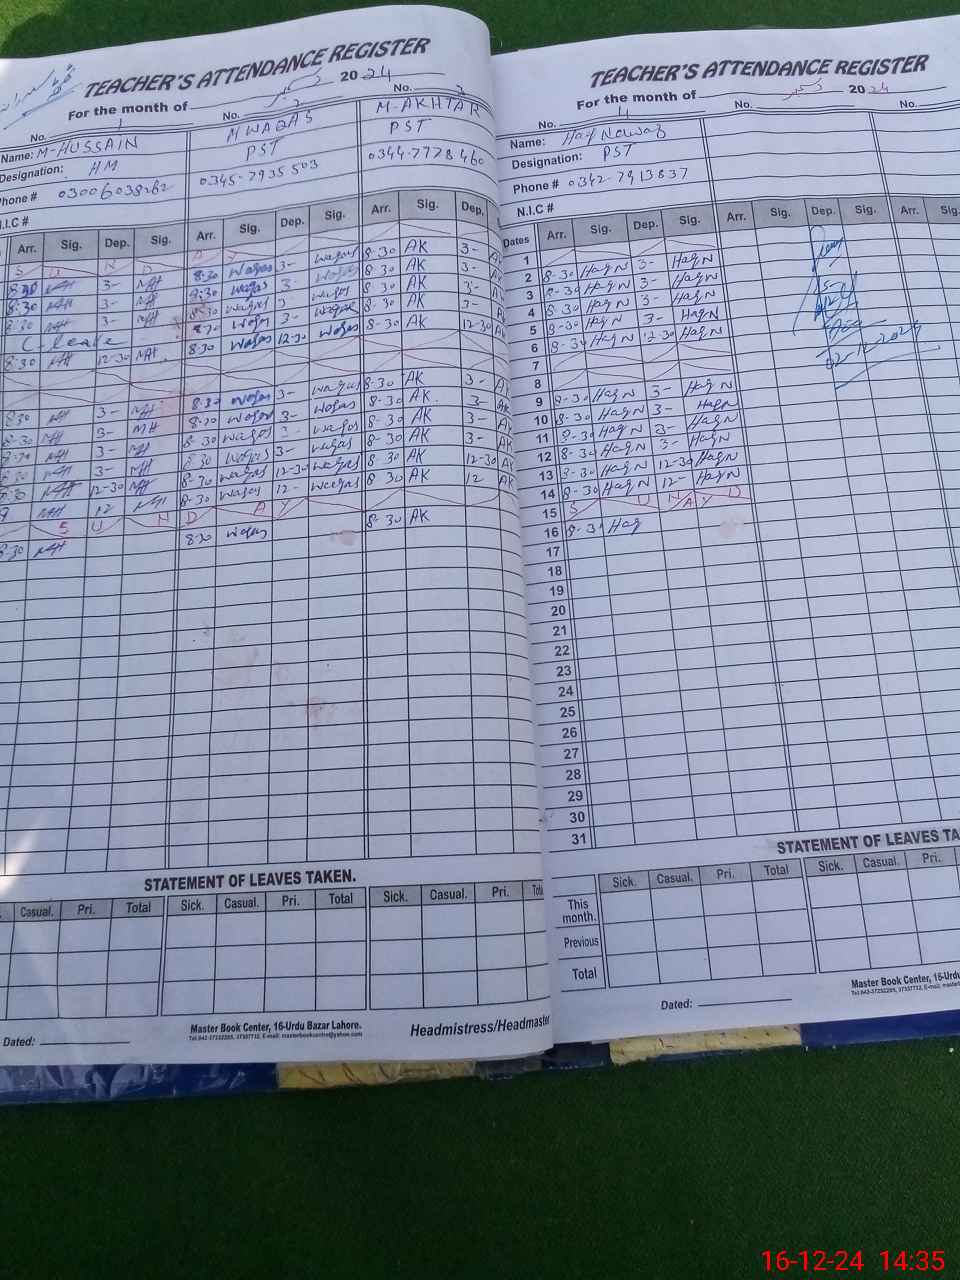 TEACHER'S ATTENDANCE REGISTER
For the month of دسمبر 2024
No. 1 No. 2 No. 3
Name: M-HUSSAIN M WAQAS M-AKHTAR
Designation: HM PST PST
Phone # 03006038262 0345-7935503 0344-7778460
N.I.C #
Arr. Sig. Dep. Sig. Arr. Sig. Dep. Sig. Arr. Sig. Dep.
S U N D A Y
8:30 MH 3- MH 8:30 Waqas 3- Waqas 8-30 AK 3- AK
8:30 MH 3- MH 8:30 Waqas 3- Waqas 8-30 AK 3- AK
8:30 MH 3- MH 8:30 Waqas 3- Waqas 8-30 AK 3- AK
C leave 8:30 Waqas 3- Waqas 8-30 AK 3- AK
8:30 MH 12-30 MH 8:30 Waqas 12-30 Waqas 8-30 AK 12-30 AK
8:30 MH 3- MH 8:30 Waqas 3- Waqas 8-30 AK 3- AK
8-30 MH 3- MH 8:30 Waqas 3- Waqas 8-30 AK 3- AK
8-30 MH 3- MH 8-30 Waqas 3- Waqas 8-30 AK 3- AK
8-30 MH 3- MH 8:30 Waqas 3- Waqas 8-30 AK 3- AK
8:30 MH 12-30 MH 8-30 Waqas 12-30 Waqas 8-30 AK 12-30 AK
MH 12 MH 8-30 Waqas 12- Waqas 8 30 AK 12 AK
S U N D A Y
8-30 MH 8:30 Waqas 8-30 AK
STATEMENT OF LEAVES TAKEN.
Casual. Pri. Total Sick. Casual. Pri. Total Sick. Casual. Pri.
Dated:
Master Book Center, 16-Urdu Bazar Lahore.
Headmistress/Headmaster
TEACHER'S ATTENDANCE REGISTER
For the month of دسمبر 2024
No. 4 No. No.
Name: Haq Nawaz
Designation: PST
Phone # 0342-7913837
N.I.C #
Dates Arr. Sig. Dep. Sig. Arr. Sig. Dep. Sig. Arr.
1
2 8-30 Haq N 3- Haq N
3 8-30 Haq N 3- Haq N
4 8-30 Haq N 3- Haq N
5 8-30 Haq N 3- Haq N
6 8-30 Haq N 12-30 Haq N
7
8
9 8-30 Haq N 3- Haq N
10 8-30 Haq N 3- Haq N
11 8-30 Haq N 3- Haq N
12 8-30 Haq N 3- Haq N
13 8-30 Haq N 12-30 Haq N
14 8-30 Haq N 12- Haq N
15 S U N D A Y
16 8-31 Haq
17
18
19
20
21
22
23
24
25
26
27
28
29
30
31
STATEMENT OF LEAVES TA
Sick. Casual. Pri. Total Sick. Casual. Pri.
This month.
Previous
Total
Dated:
Master Book Center, 16-Urdu
16-12-24 14:35